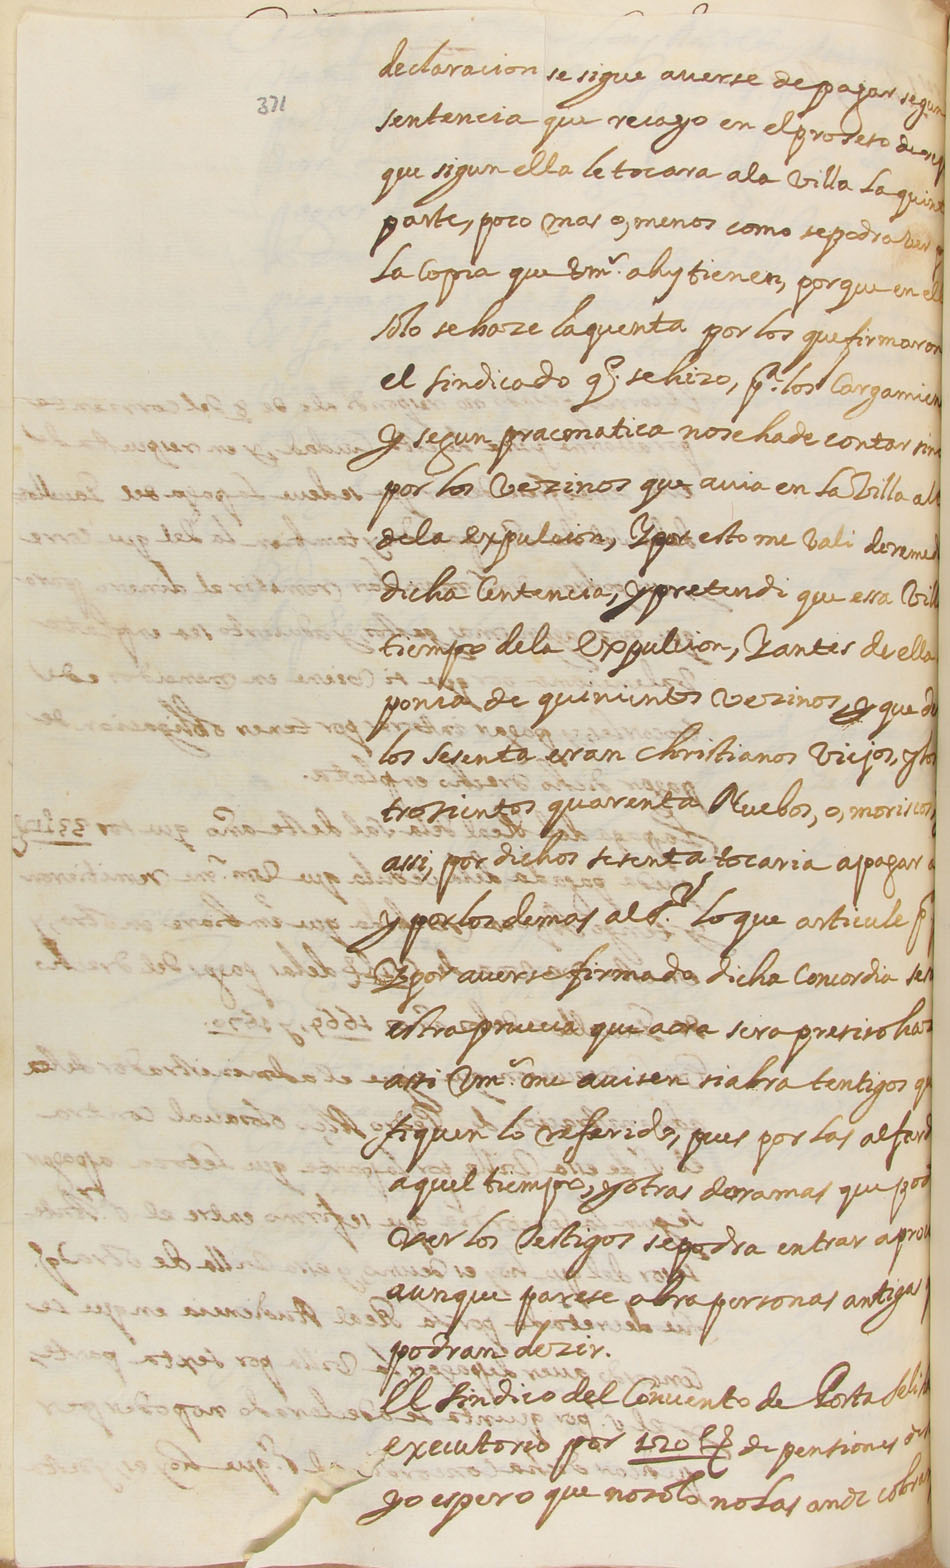 371
declaracion se sigue averse de pagar segun
sentencia que recayo en el proseso de
que sigun ella le tocara a la Villa la quint
parte, poco mas o, menos como se podra ver
La Copia que Vm.ˢ ahy tienen, porque en el
solo se haze la quenta por los que firmaron
el sindicado q.ᵉ se hizo, p.ᵃ los Cargamien
y segun pracmatica no se ha de contar sin
por los Vezinos que avia en La Villa al
de la expulcion, y por esto me vali de remed
dicha Centencia, y pretendi que essa Vill
tiempo de la Expulcion, y antes de ella
ponia de quinientos Vezinos, y que d
los sesenta erran Christianos Viejos, y los
trosientos quarenta Nuebos, o, moriscos,
assi, por dichos sesenta tocaria a pagar a
y por los demas al S.ᵒʳ lo que articule p
y por averse firmado dicha Concordia se
estra prueva que aora sera presiso haz
assi Vm.ˢ me avisen si abra tentigos q
fiquen lo referido, pues por las alfard
aquel tiempo, y otras derramas que pod
ver los Testigos se podra entrar a prov
aunque parese abra personas antigas
podran dezir.
El Sindico del Convento de Porta Seli
executores por 1520 ℔ de pensiones de
yo espero que no solo no las ande cobrar